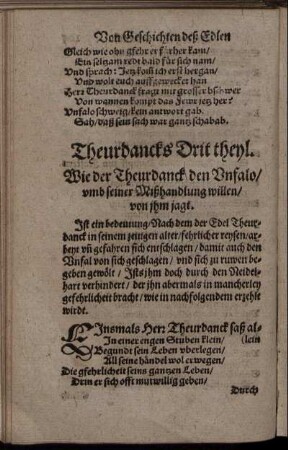 Von Geschichten deß Edlen
Gleich wie ohn gfehr er fürher kam/
Ein seltzam redt baid für sich nam/
Vnd sprach: Jetz kom̃ ich erst hergan/
Vnd wolt euch auffgewecket han
Herr Theurdanck fragt mit grosser bschwer
Von wannen kompt das Fewr jetz her?
Vnfalo schweig/kein antwort gab.
Sah/daß sein sach war gantz schabab.
Theurdancks Drit theyl.
Wie der Theurdanck den Vnfalo/
vmb seiner Mißhandlung willen/
von jhm jagt.
Ist ein bedeutung/Nach dem der Edel Theur
danck in seinem zeitigen alter/fehrlicher
beyn vñ gefahren sich entschlagen/damit auch den
Vnfal von sich geschlagen/ vnd sich zu ruwen be
geben gewölt/ Ists jhm doch durch den Neidel
hart verhindert/ der jhn abermals in mancherley
gefehrlicheit bracht/wie in nachfolgendem erzehlt
wirdt.
EInsmals Herr Theurdanck saß al-
In einer engen Stuben klein/ (lein
Begundt sein Leben vberlegen/
All seine händel wol erwegen/
Die gfehrlicheit seins gantzen Leben/
Drin er sich offt mutwillig geben/
Durch